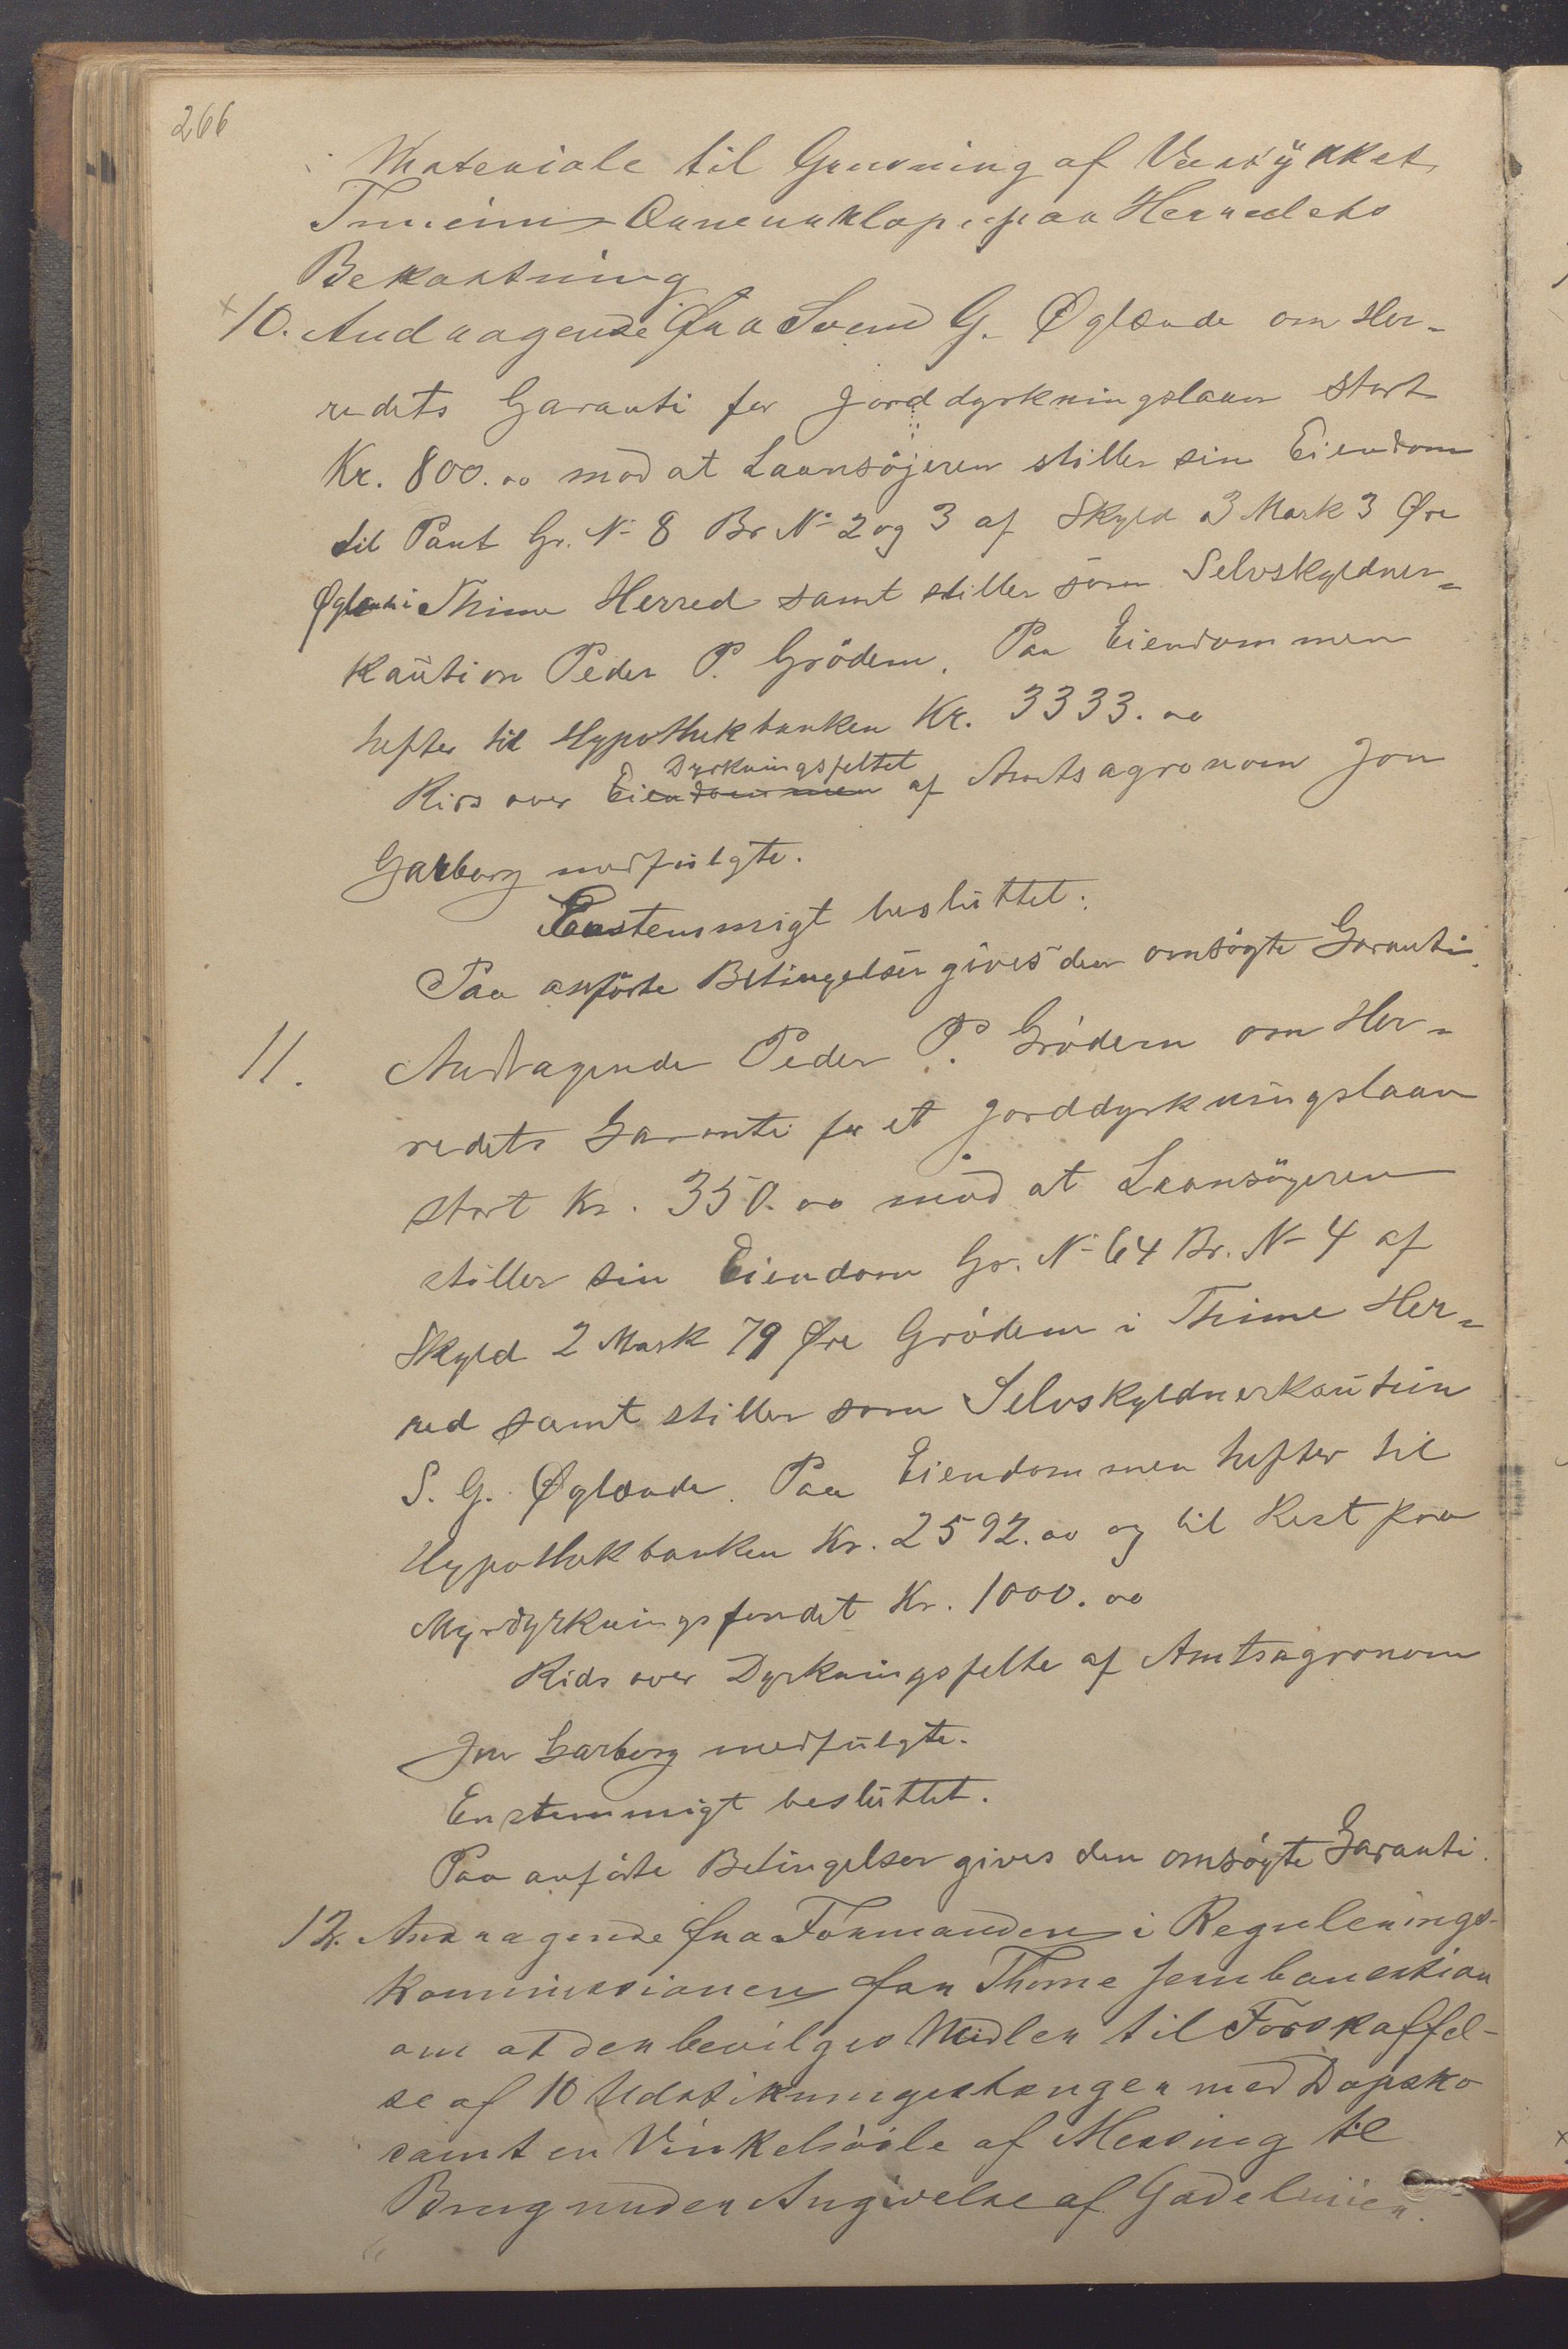 266
Materiale til Grusning af Veistykket
Tunheim Orreneklop, paa Herredets
Bekostning
x 10. Andragende fra Svend G. Øglænde om Her-
redets Garanti for Jorddyrkningslaan stort
Kr. 800.00 mod at Laansøjeren stiller sin Eiendom
til Pant Gr. N- 8 Br N- 2 og 3 af Skyld 3 Mark 3 Øre
Øglænd i Thime Herred samt stiller som Selvskyldner-
kaution Peder P. Grödem. Paa Eiendommen
hefter til Hypothekbanken Kr. 3333.00
Dyrkningsfeltet
Rids over Eiendommen af Amtsagronom Jon
Garborg medfulgte.
Enstemmigt besluttet:
Paa anførte Betingelser gives den omsøgte Garanti.
11. Andragende Peder P. Grödem om Her-
redets Garanti for et Jorddyrkningslaan
stort Kr. 350.00 mod at Laansøgeren
stiller sin Eiendom Gr. N- 64 Br. N- 4 af
Skyld 2 Mark 79 Øre Grödem i Thime Her-
red samt stiller som Selvskyldnerkaution
S. G. Øglænde. Paa Eiendommen hefter til
Hypothekbanken Kr. 2592.00 og til Rest paa
Myrdyrkningsfondet Kr. 1000.00
Rids over Dyrkningsfelte af Amtsagronom
Jon Garborg medfulgte.
Enstemmigt besluttet.
Paa anførte Betingelser gives den omsøgte Garanti.
12. Andragende fra Formanden i Regulerings-
kommissionen for Thime Jernbanestion
om at der bevilges Midler til Forskaffel-
se af 10 Udstikningsstænger med Dopsko
samt en Vinkelsöile af Messing til
Brug under Angivelse af Gadelinier.